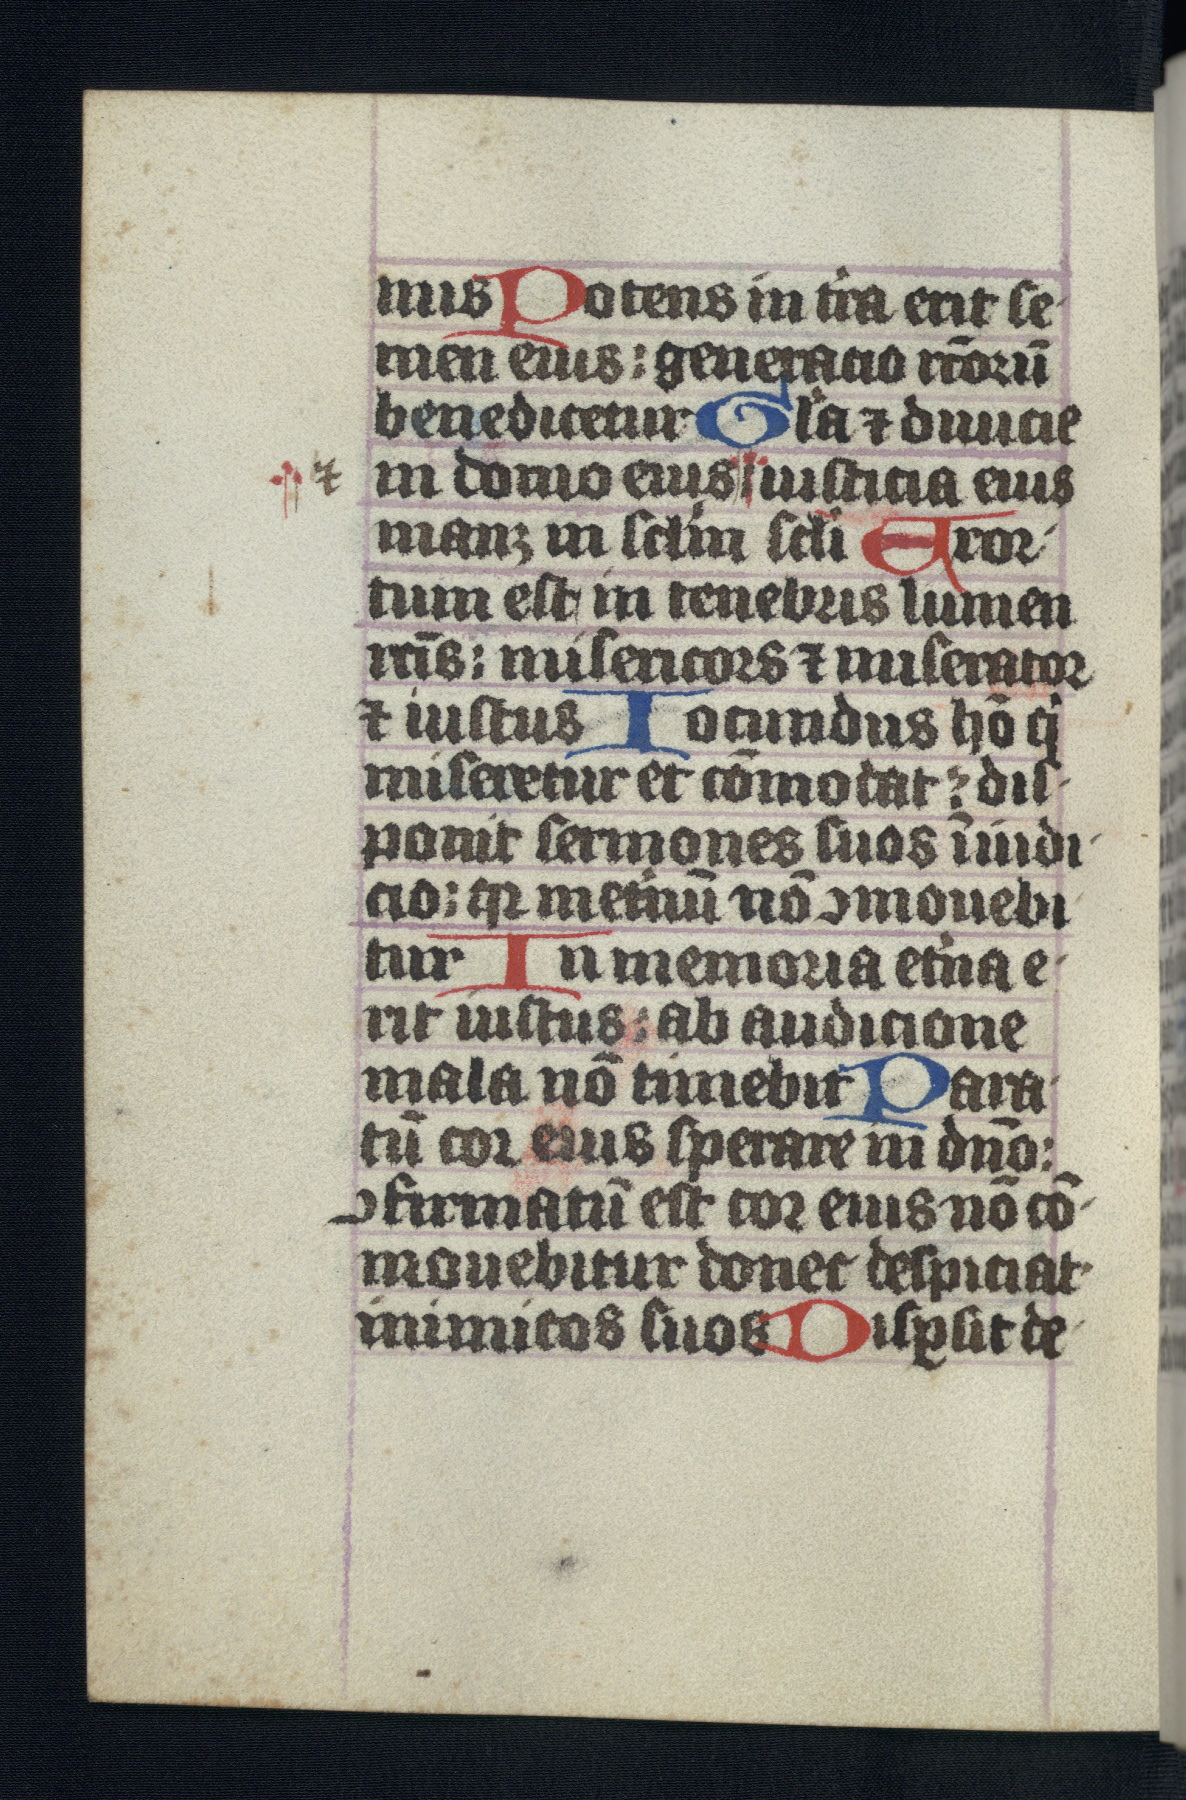 mus Potens in tra erit se
men eius: generacio rc̄orū
benedicetur Gla ⁊ diuicie
⁊ in domo eius iusticia eius
manꝫ in sclm scli Exor
tum est in tenebris lumen
rcīs: misericors ⁊ miserator
⁊ iustus Iocundus hō qi
miseretur et cōmodat: dis
ponit sermones suos ī iudi
cio: qꝛ in etnū nō ꝯmouebi
tur In memoria etna e
rit iustus: ab audicione
mala nō timebit Para
tū cor eius sperare in dn̄o:
ꝯfirmatū est cor eius nō cō
mouebitur donec despiciat
inimicos suos Disꝑsit de